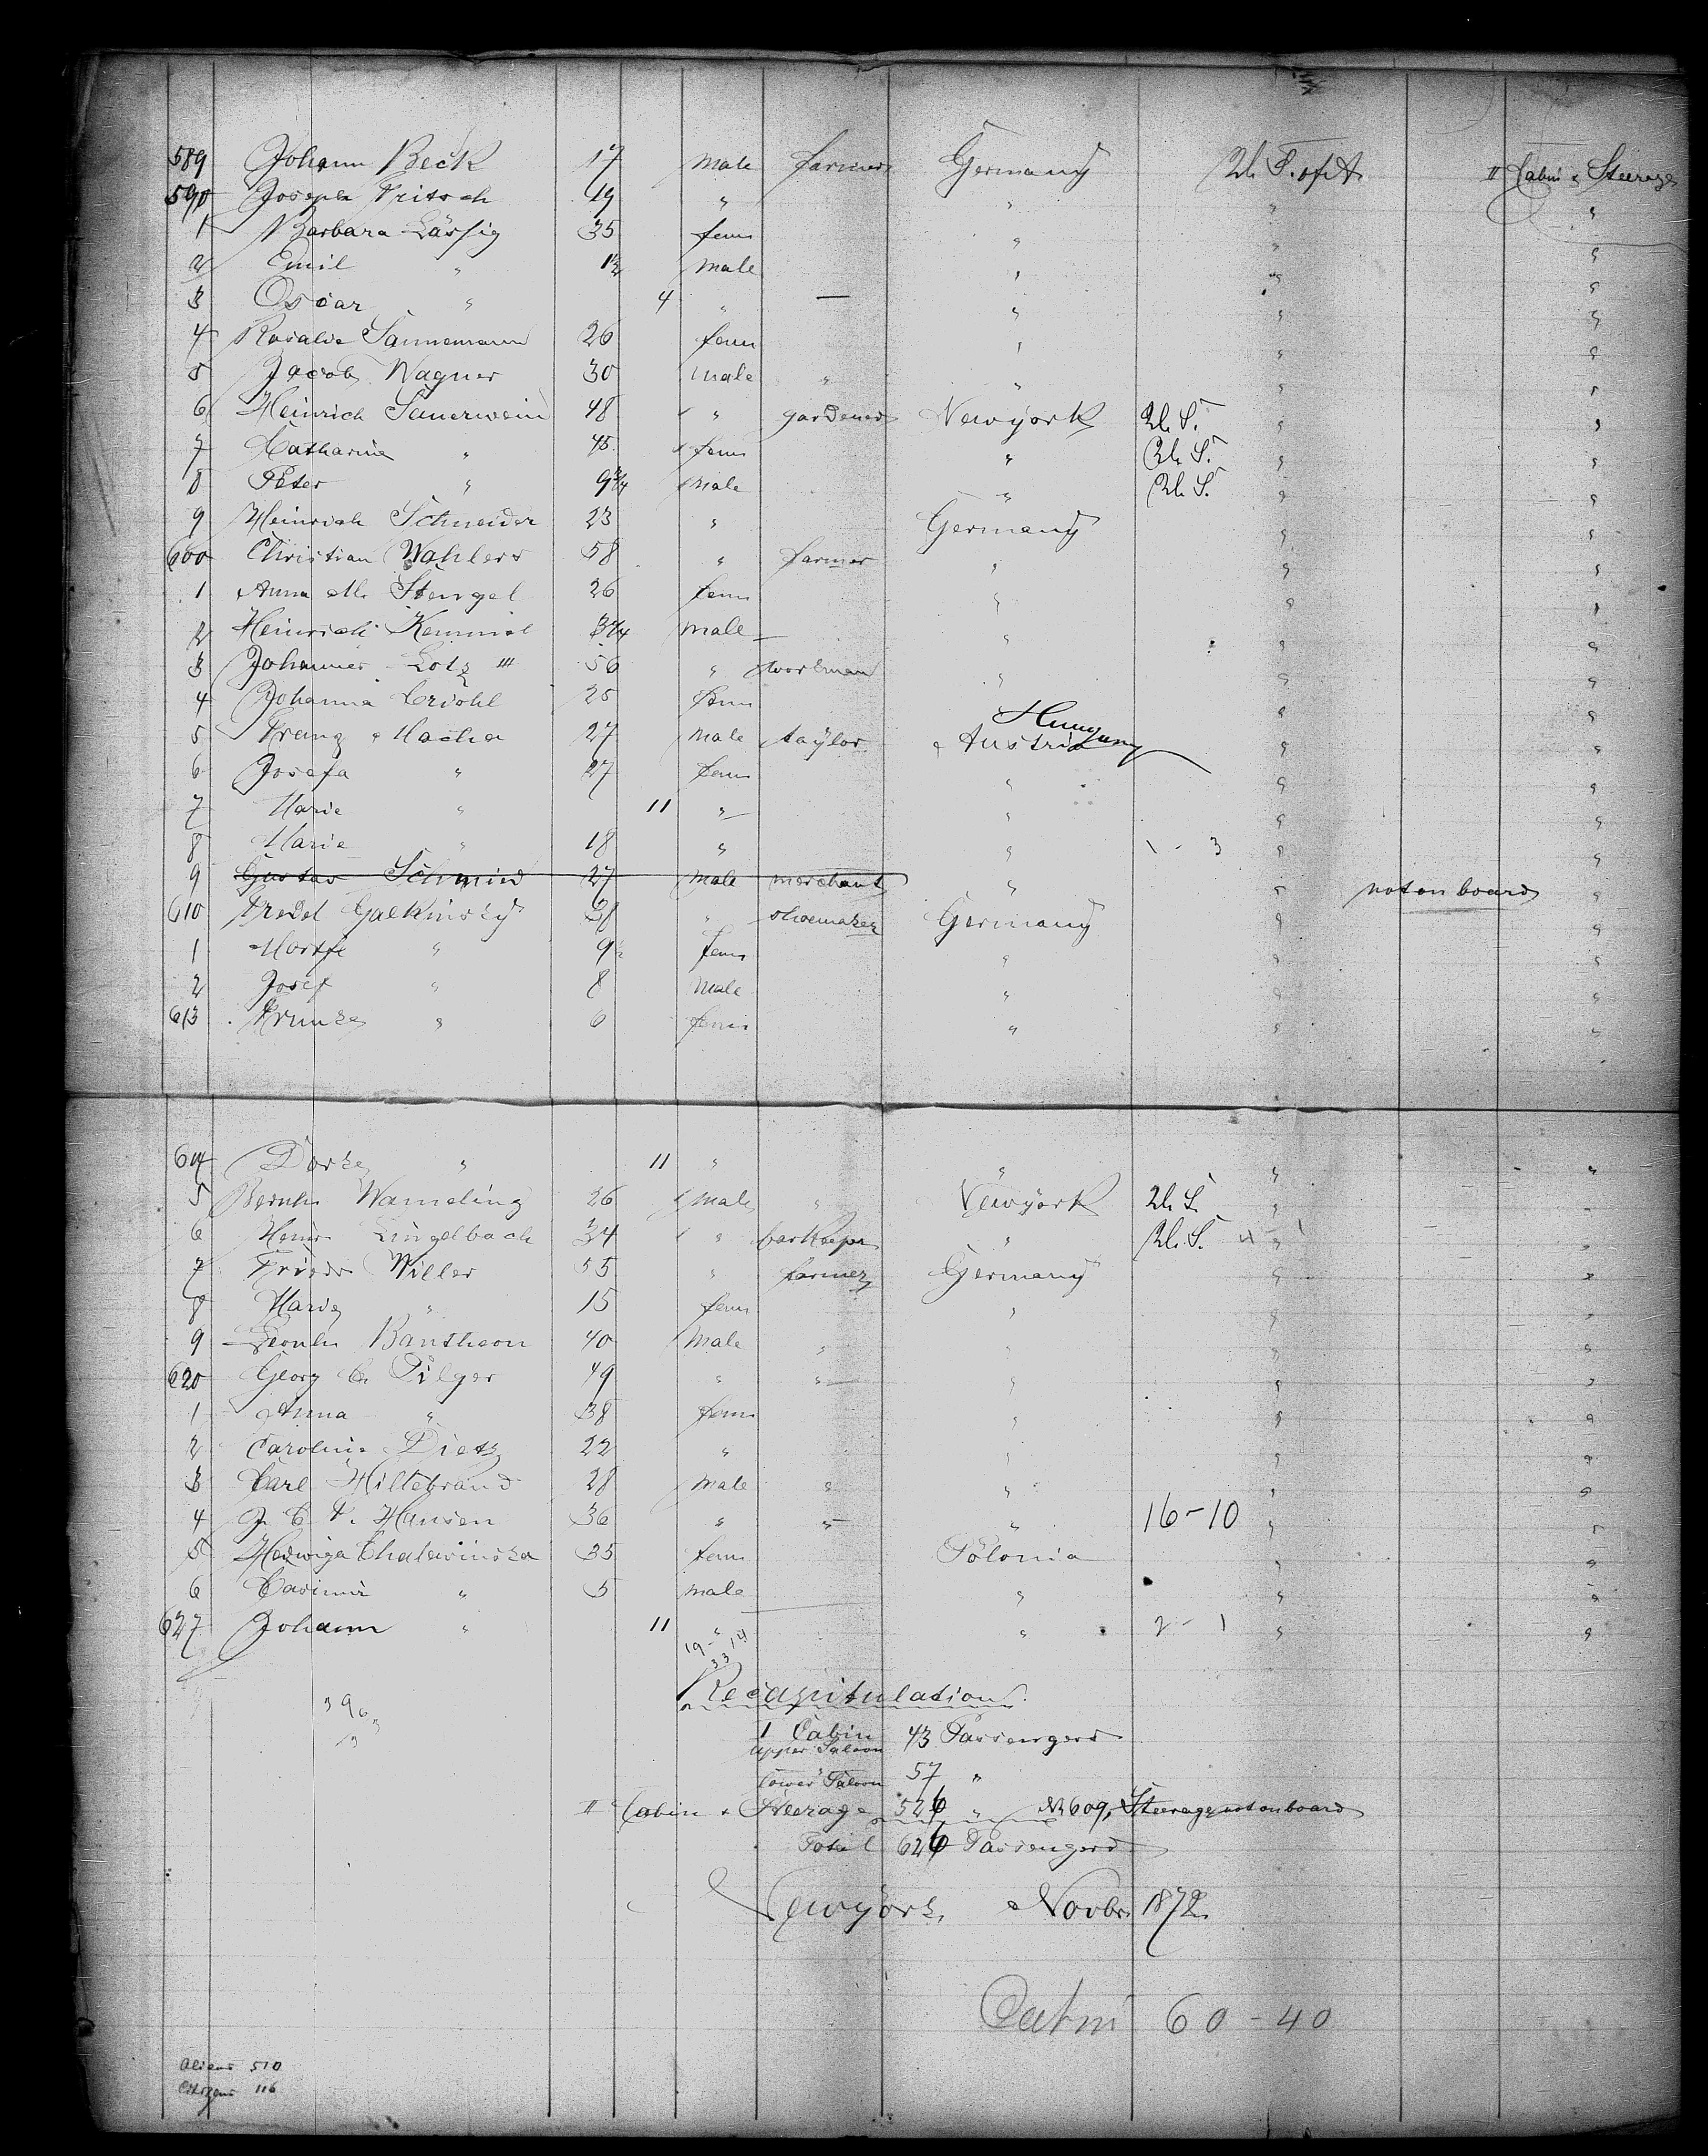 589 Johann Beck 17 male farmer Germany U. S. of A. II Cabin & Steerage
590 Joseph Fritsch 19 " " " "
1 Barbara Lässig 35 fem " " "
2 Emil " 1½ male " " "
3 Oscar " 4 " — " " "
4 Rosalie Sannemann 26 fem " " "
5 Jacob Wagner 30 male " " " "
6 Heinrich Sauerwein 48 " gardener Newyork U. S. " "
7 Catharina " 45 fem " U. S. " "
8 Peter " 9¾ male " U. S. " "
9 Heinrich Schneider 23 " Germany " "
600 Christian Wahlers 58 " farmer " " "
1 Anna M. Stengel 26 fem " " "
2 Heinrich Kemmel 3¾ male — " " "
3 Johannes Lotz III 56 " workman " " "
4 Johanna 25 fem " "
5 Franz Macha 27 male taylor Austria Hungary " "
6 Josefa " 27 fem " " "
7 Marie " 11 " " " "
8 Marie " 18 " " 1 - 3 " "
9 Gustav Schmied 27 male merchant " " not on board "
610 Galkinsky 38 " shoemaker Germany " "
1 " 9 fem " " "
2 Josef " 8 male " " "
613 " 6 fem " " "
614 " 11 " " " "
5 Bernh. Wameling 26 male " Newyork U. S. " "
6 Heinr. Lingelbach 34 " barkeeper " U. S. "
7 Friedr. Willer 55 " farmer Germany " "
8 Marie " 15 fem " " "
9 Leonh. Bantheon 40 male " " " "
620 Georg Ch. Pilger 49 " " " " "
1 Anna " 38 fem " " "
2 Caroline Dietz 22 " " " "
3 Carl Hiltebrand 28 male " " " "
4 J. C. F. Hansen 36 " " " 16-10 " "
5 Hedwiga Chalewinska 35 fem Polonia " "
6 Casimir " 5 male " " "
627 Johann " 11 " " 2 - 1 " "
Recapitulation.
1 Cabin
upper Saloon 43 Passengers
lower Saloon 57 "
II Cabin & Steerage 526 " No 609, Steerage not on board
Total 626 Passengers
Newyork, Novbr. 1872.
Cabin 60 - 40
Aliens 510
Citizens 116